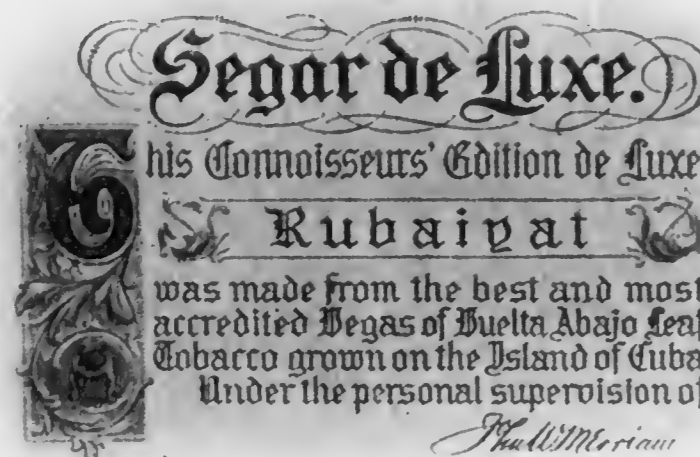 Segar de Luxe.
This Connoisseurs' Edition de Luxe
Rubaiyat
was made from the best and most
accredited Vegas of Vuelta Abajo Leaf
Tobacco grown on the Island of Cuba
Under the personal supervision of
Jno W. Merriam